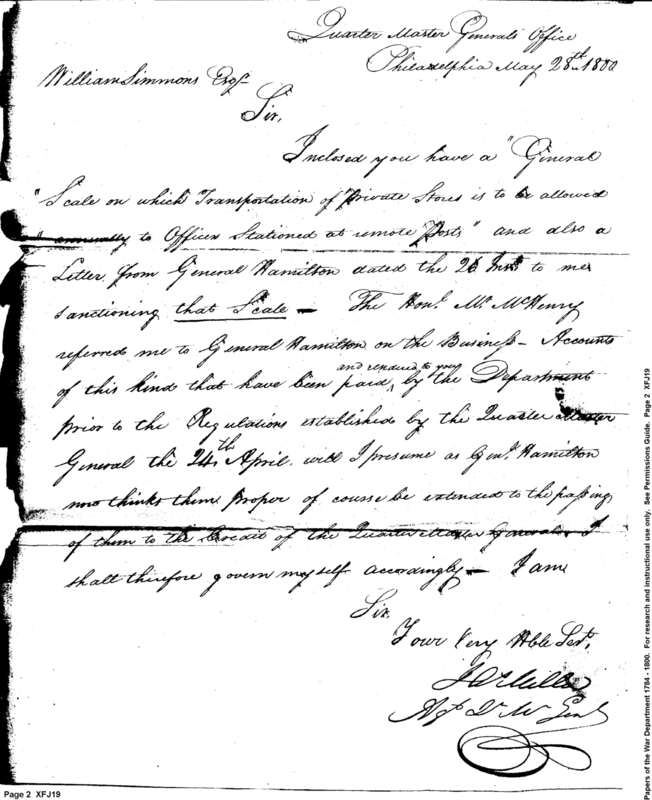 Quarter Master Generals Office
Philadelphia May 28th 1800
William Simmons Esqr
Sir,
Inclosed you have a "General
"Scale on which Transportation of Private Stores is to be allowed
" annually to Officers Stationed at remote Posts" and also a
Letter from General Hamilton dated the 26 Inst to me
sanctioning that Scale — The Honl. Mr. McHenry
referred me to General Hamilton on the Business – Accounts
and rendered to you
of this kind that have been paid, by the Department
prior to the Regulations established by the Quarter Master
General the 24th April, will I presume as Genl. Hamilton
thinks them proper of course be extended to the passing
of them to the Credit of the Quarter Master General. I
shall therefore govern myself accordingly — I am
Sir,
Your Very Hble Sert,
J Miller
At Qr Mr Genl
Page 2 XFJ19
Papers of the War Department 1784 - 1800. For research and instructional use only. See Permissions Guide. Page 2 XFJ19